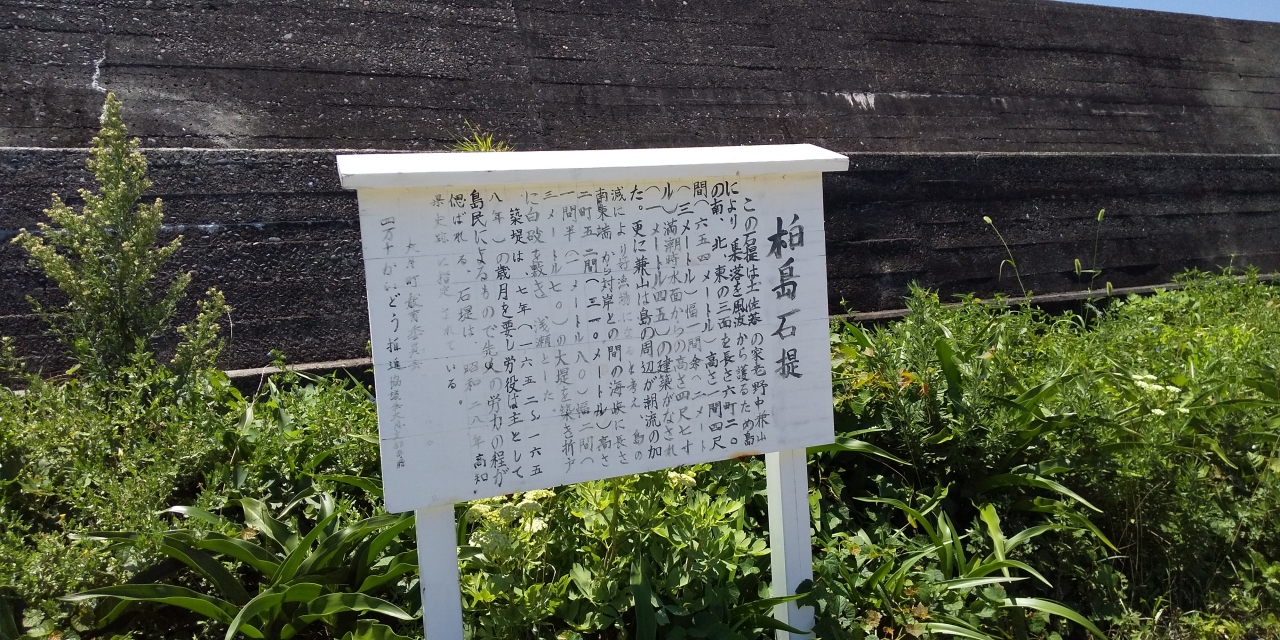 柏島石提
この石提は土佐藩の家老野中兼山
により 集落を風波から護るため島
の南、北、東の三面を長さ六町二〇
間(六五四メートル)高さ一間四尺
(三メートル)幅一間余(二メート
ル)満潮時水面からの高さ四尺七寸
(一メートル四五)の建築がなされ
た。更に兼山は島の周辺が潮流の加
減により好漁場になると考え 島の
南東端から対岸との間の海峡に長さ
二町五二間(三一〇メートル)高さ
一間半(二メートル八〇)幅二間(
三メートル七〇)の大堤を築き折
に白破を敷き 浅瀬とした。
築堤は、七年(一六五二〜一六五
八年)の歳月を要し労役は主として
島民によるもので先人の労力の程が
偲ばれる、石堤は 昭和二八年 高知
県史跡に指定されている。
大月町教育委員会
四万十かいどう推進協議会